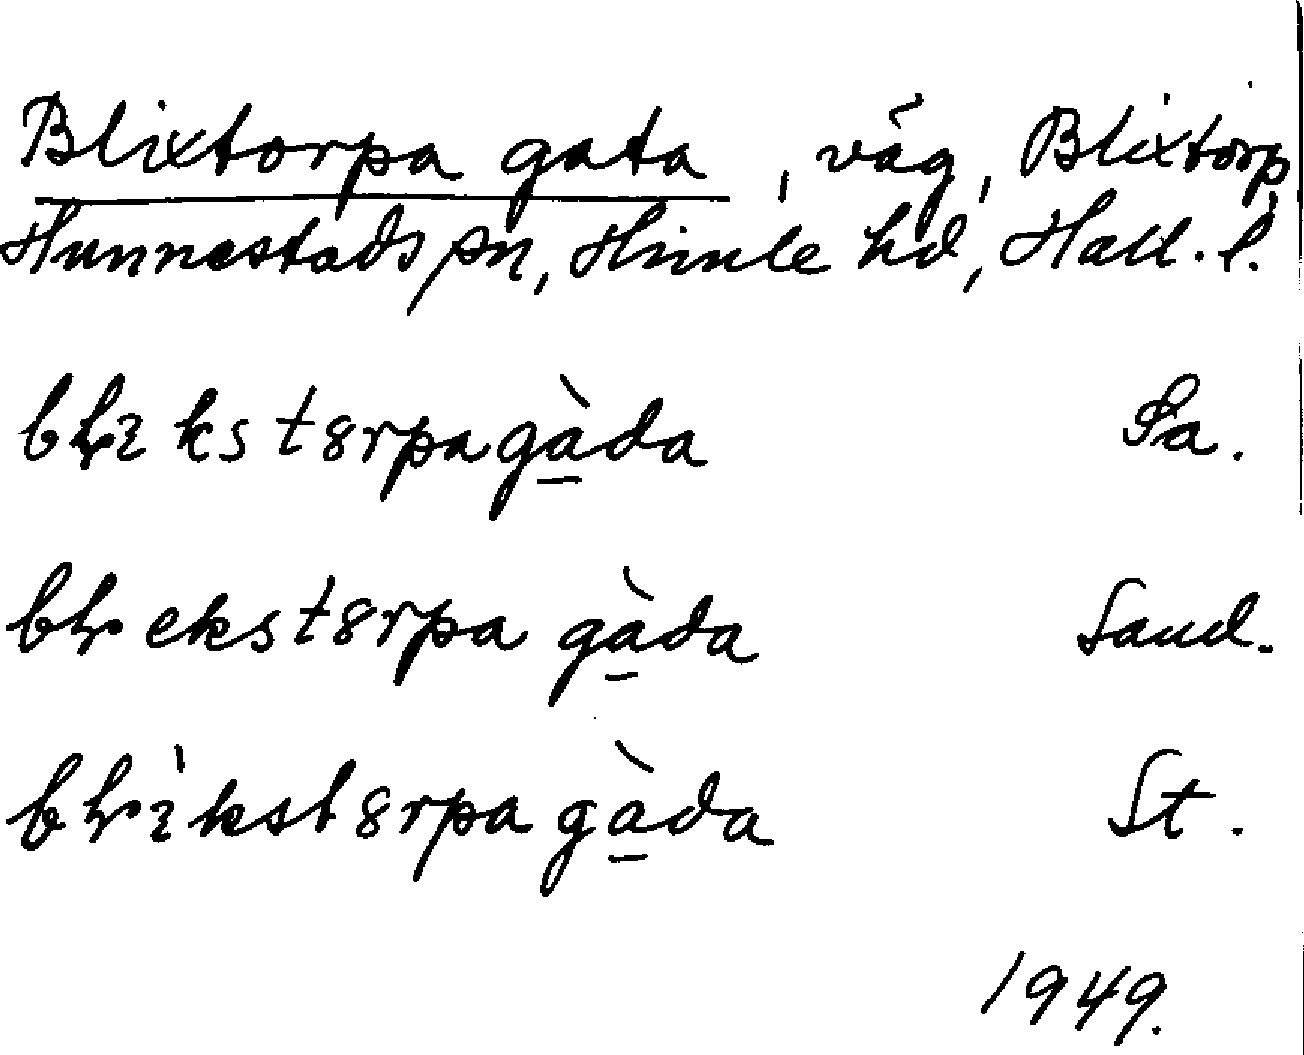 Blixtorpa gata, väg, Blixtorp,
Hunnestads sn, Himle hd, Hall. l.
błıkst8rpagàda Sa.
błekst8rpa gàda Sand.
błı̀kst8rpa gàda St.
1949.